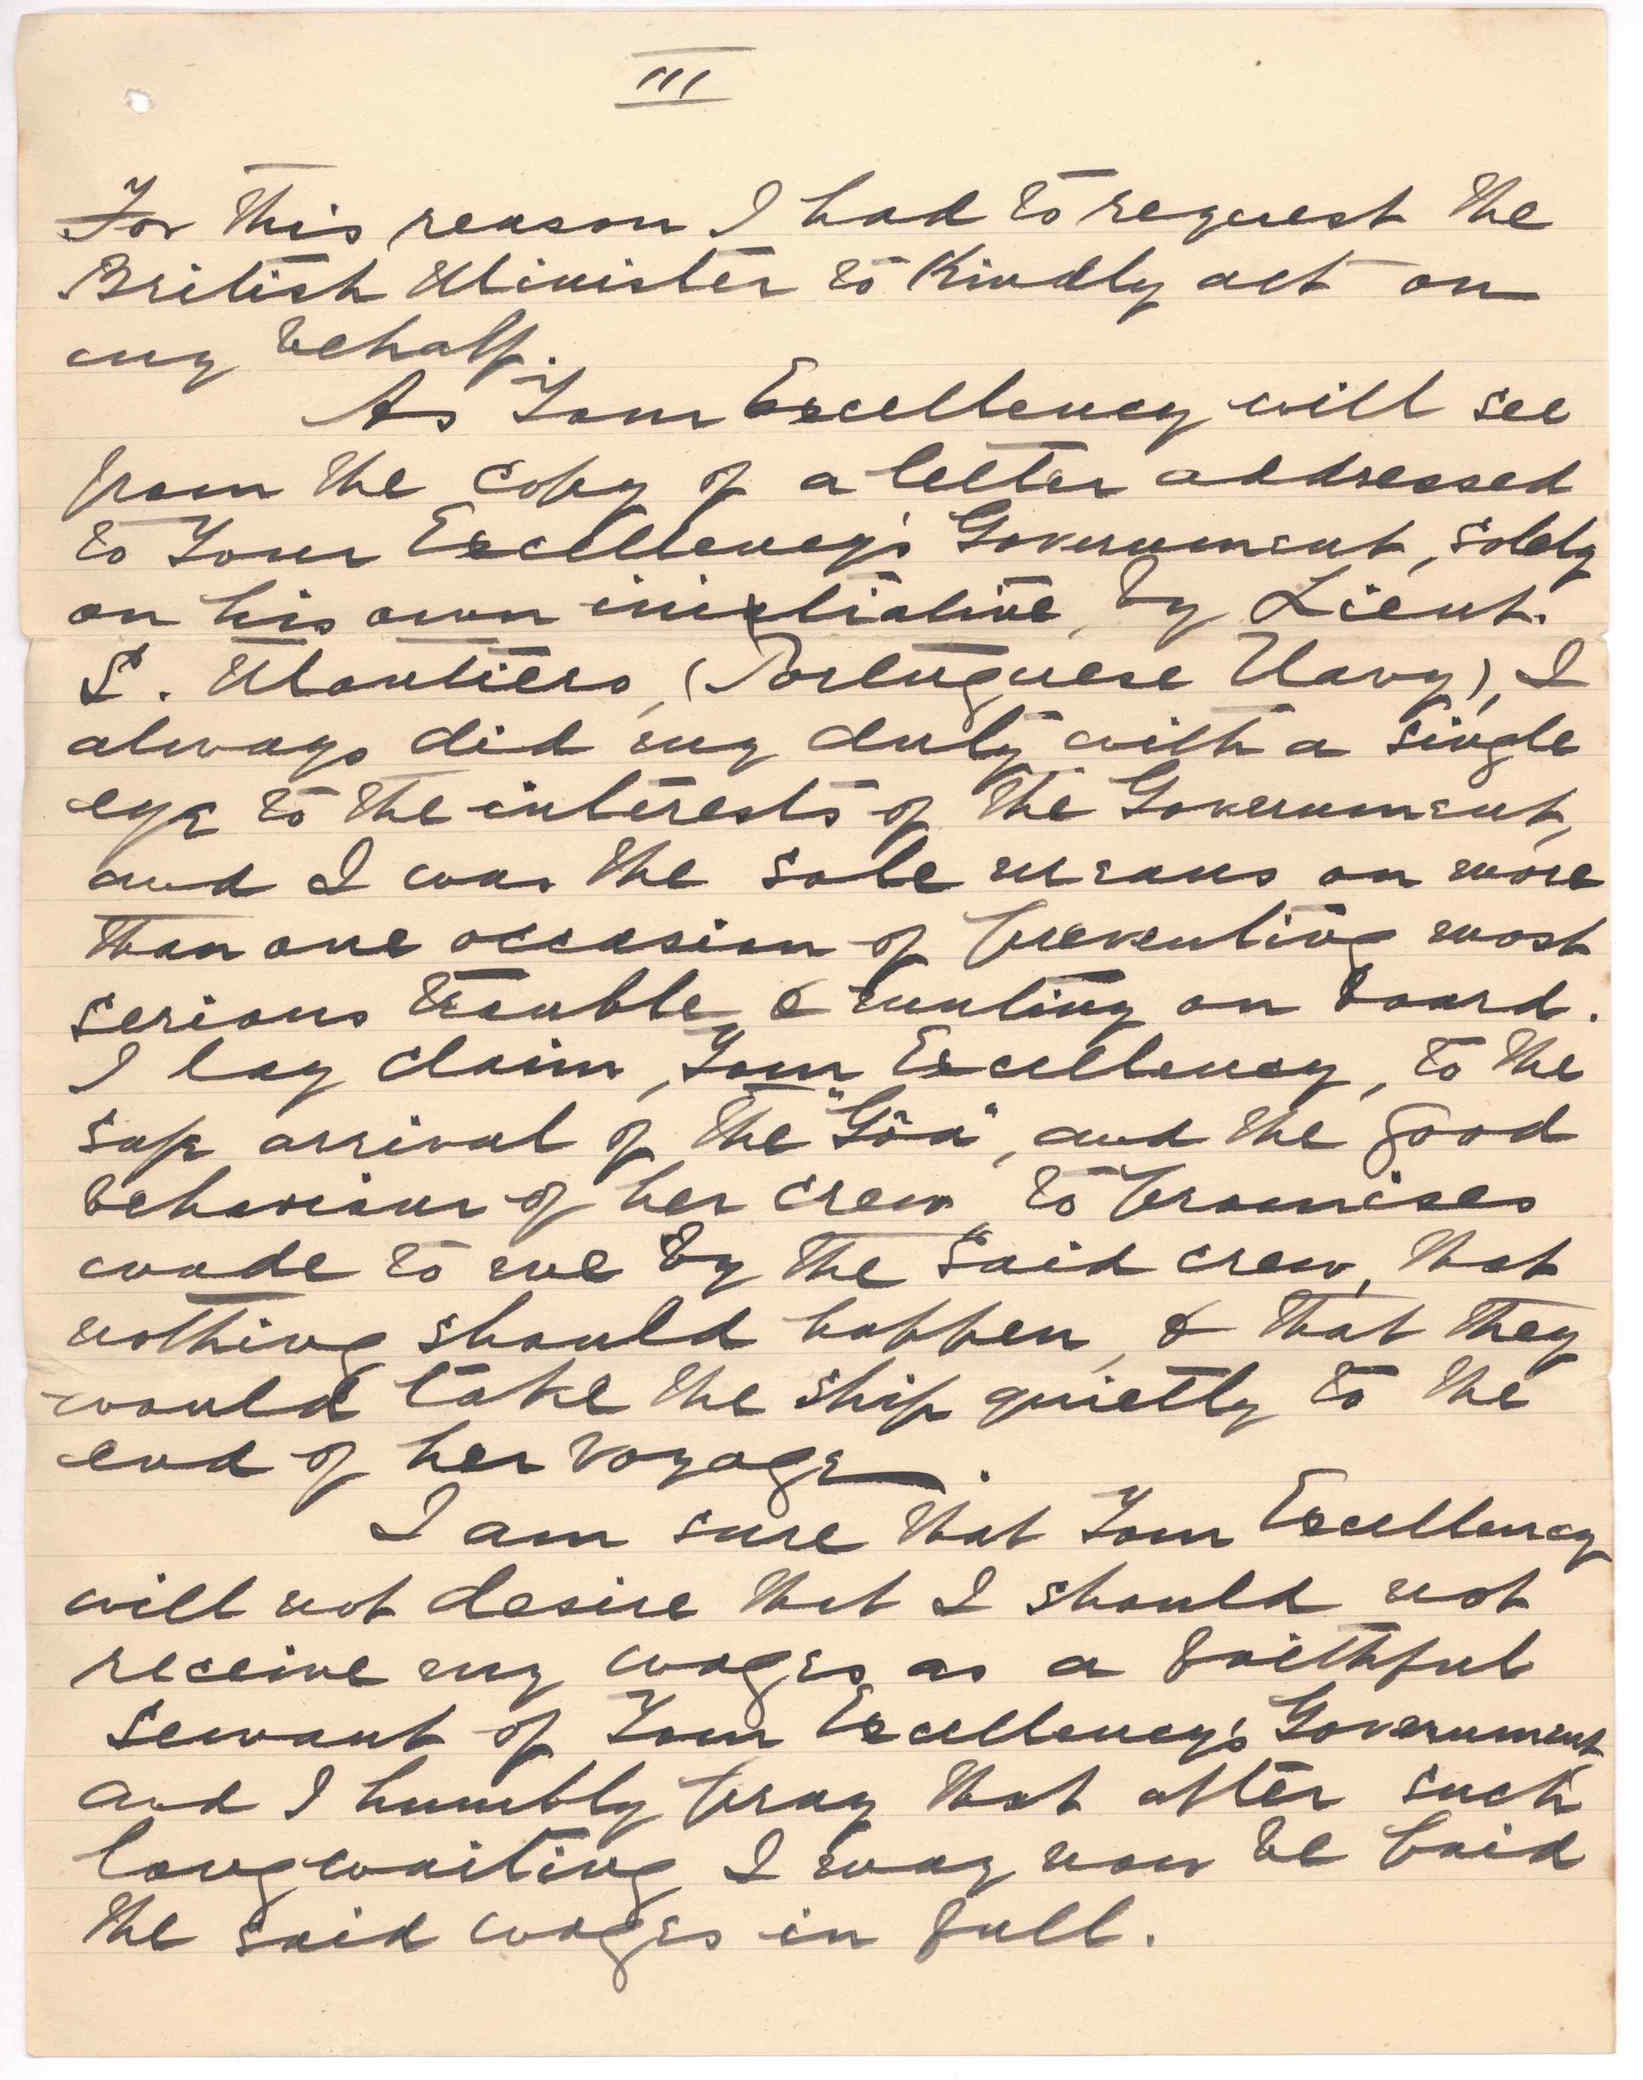 III
For this reason I had to request the
British Minister to Kindly act on
my behalf.
As Your Excellency will see
from the copy of a letter addressed
to Your Excellency's Government, solely
on his own iniatiative, by Lieut.
S. Montiero, (Portuguese Navy), I
always did my duty with a single
eye to the interests of the Government,
and I was the sole means on more
than one occasion of preventing most
serious trouble & munting on board.
I lay claim, Your Excellency, to the
safe arrival of the "Gôa", and the good
behaviour of her crew to promises
made to me by the said crew, that
nothing should happen, & that they
would take the ship quietly to the
end of her voyage.
I am sure that Your Excellency
will not desire that I should not
receive my wages as a faithful
servant of Your Excellency's Government
and I humbly pray that after such
long waiting I may now be paid
the said wages in full.